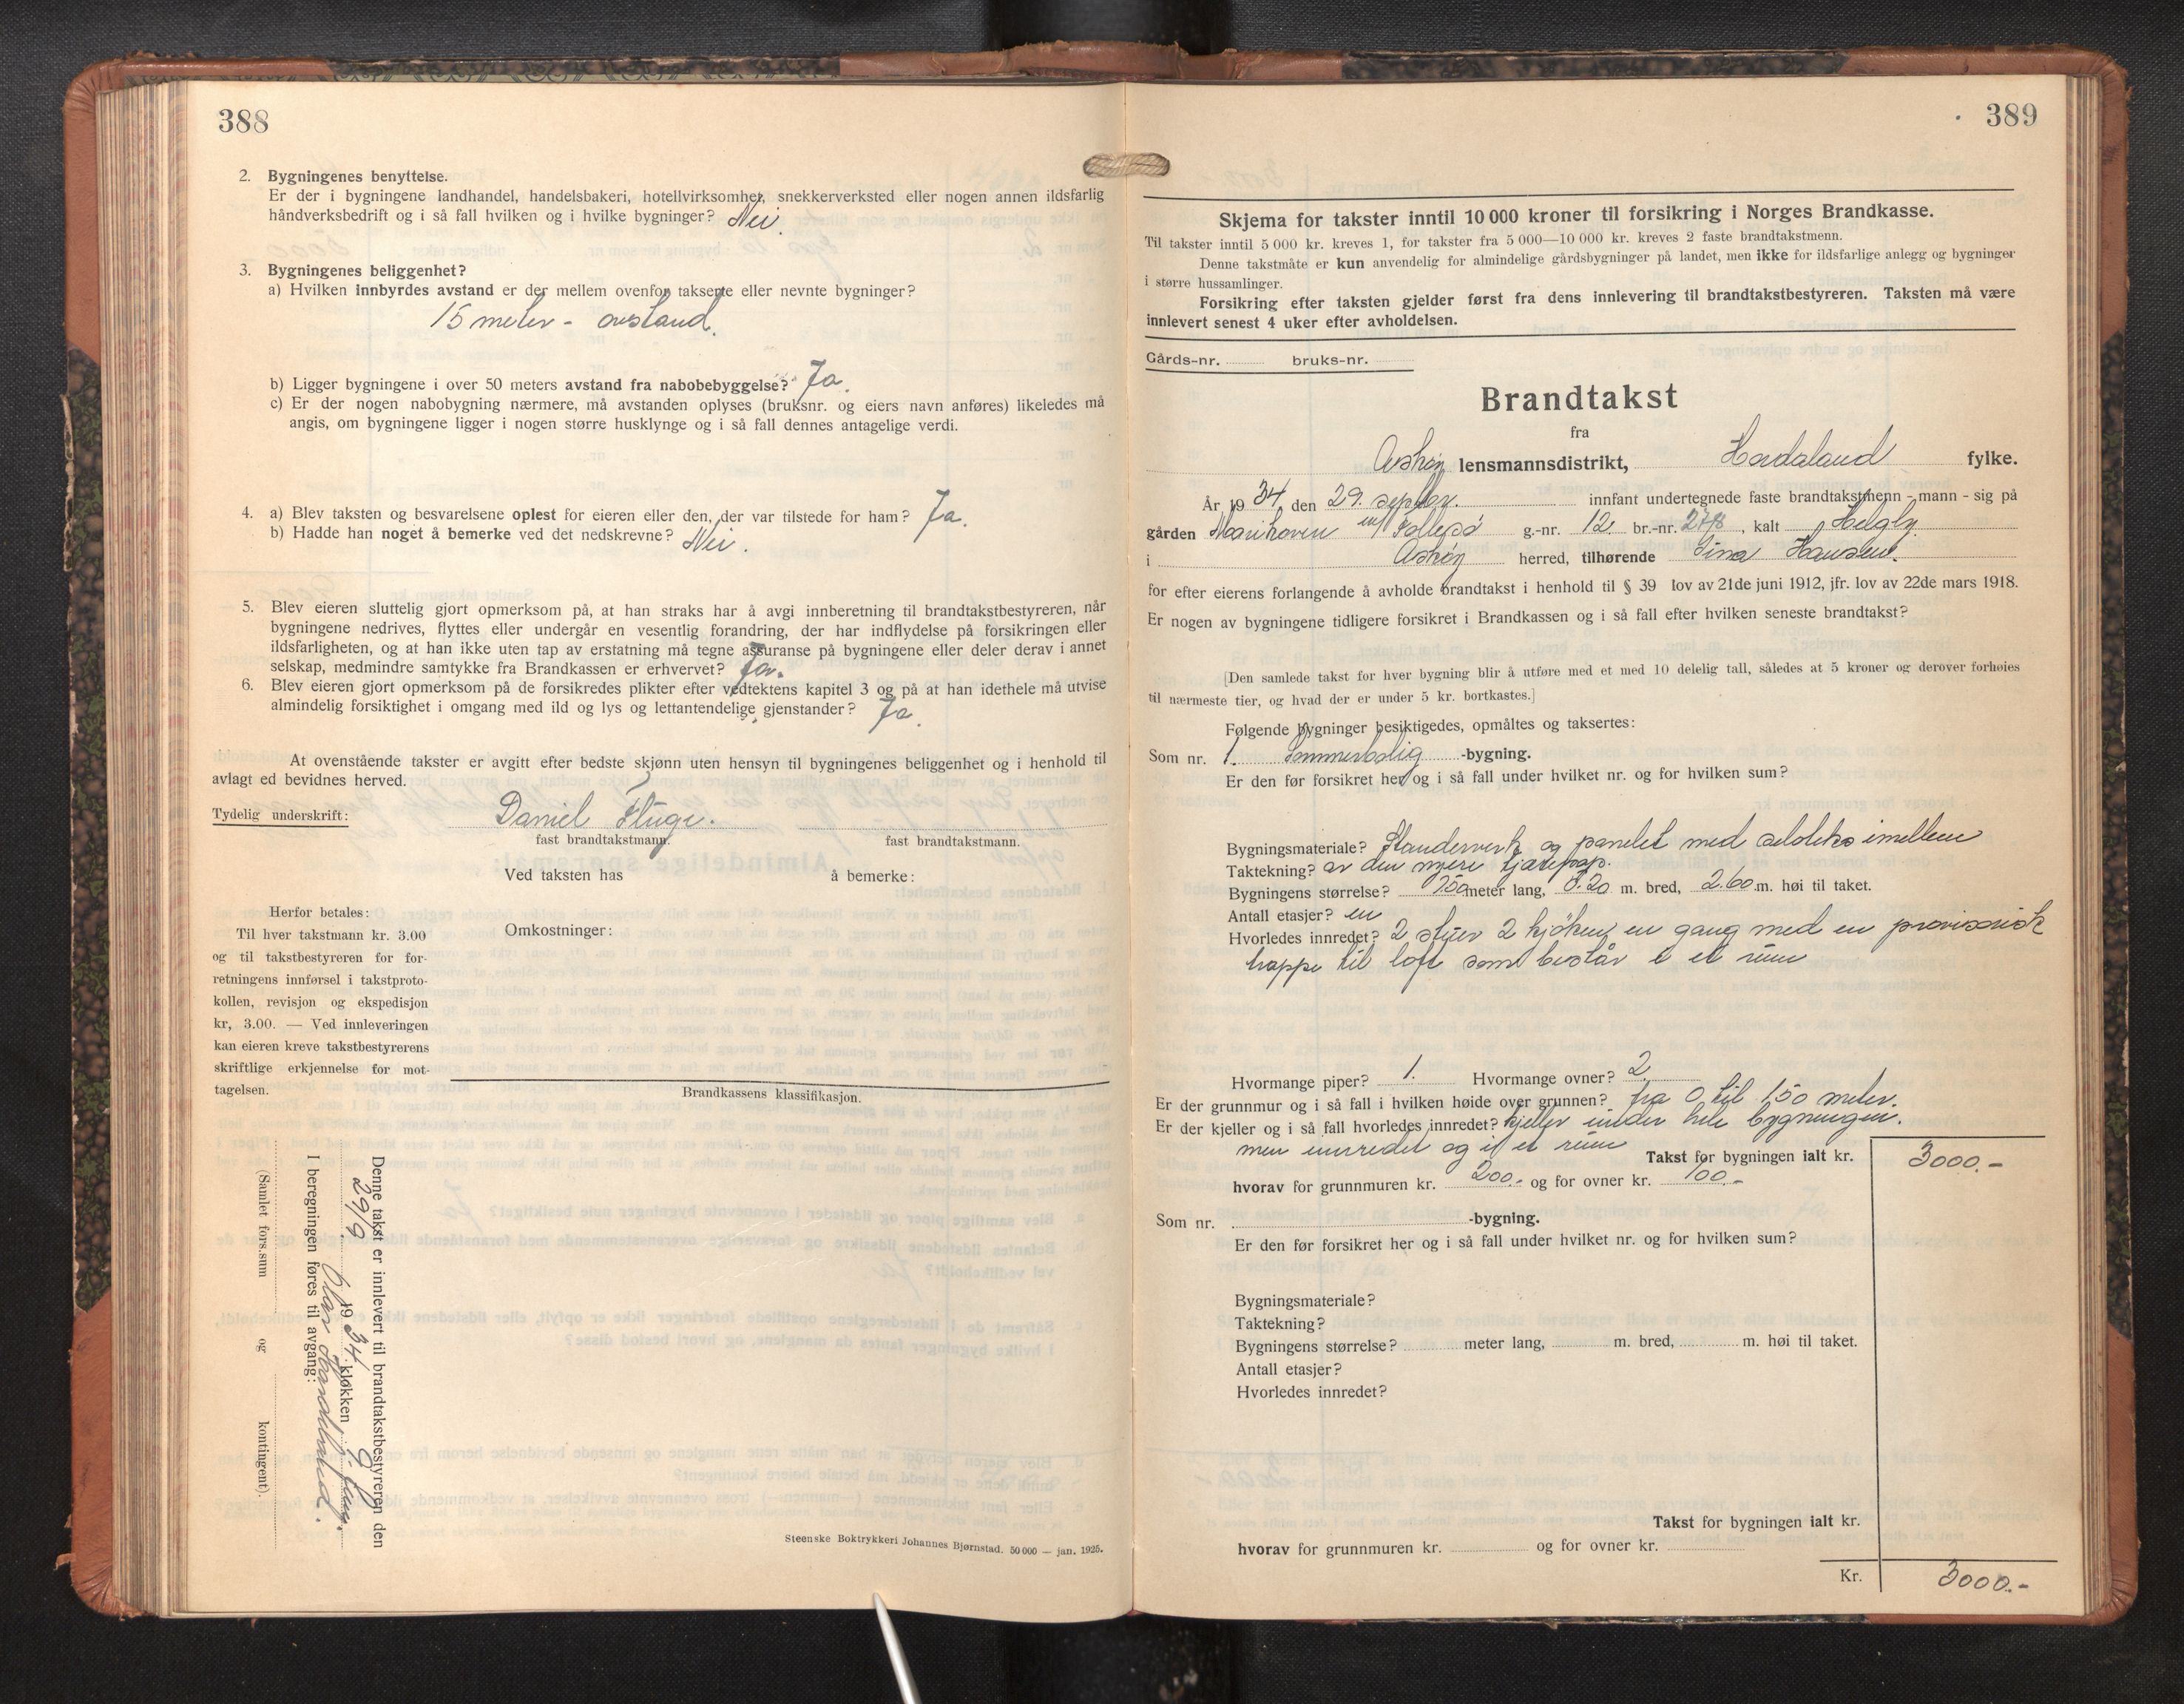 388
2. Bygningenes benyttelse.
Er der i bygningene landhandel, handelsbakeri, hotellvirksomhet, snekkerverksted eller nogen annen ildsfarlig
håndverksbedrift og i så fall hvilken og i hvilke bygninger? Nei.
3. Bygningenes beliggenhet?
a) Hvilken innbyrdes avstand er der mellem ovenfor takserte eller nevnte bygninger?
15 meter - avstand.
b) Ligger bygningene i over 50 meters avstand fra nabobebyggelse? Ja.
c) Er der nogen nabobygning nærmere, må avstanden oplyses (bruksnr. og eiers navn anføres) likeledes må
angis, om bygningene ligger i nogen større husklynge og i så fall dennes antagelige verdi.
4. a) Blev taksten og besvarelsene oplest for eieren eller den, der var tilstede for ham? Ja.
b) Hadde han noget å bemerke ved det nedskrevne? Nei.
5. Blev eieren sluttelig gjort opmerksom på, at han straks har å avgi innberetning til brandtakstbestyreren, når
bygningene nedrives, flyttes eller undergår en vesentlig forandring, der har indflydelse på forsikringen eller
ildsfarligheten, og at han ikke uten tap av erstatning må tegne assuranse på bygningene eller deler derav i annet
selskap, medmindre samtykke fra Brandkassen er erhvervet? Ja.
6. Blev eieren gjort opmerksom på de forsikredes plikter efter vedtektens kapitel 3 og på at han idethele må utvise
almindelig forsiktighet i omgang med ild og lys og lettantendelige gjenstander? Ja.
At ovenstående takster er avgitt efter bedste skjønn uten hensyn til bygningenes beliggenhet og i henhold til
avlagt ed bevidnes herved.
Tydelig underskrift: Daniel Fluge.
fast brandtakstmann. fast brandtakstmann.
Ved taksten has å bemerke:
Herfor betales:
Til hver takstmann kr. 3.00
og til takstbestyreren for for-
retningens innførsel i takstproto-
kollen, revisjon og ekspedisjon
kr, 3.00. — Ved innleveringen
kan eieren kreve takstbestyrerens
skriftlige erkjennelse for mot-
tagelsen.
Omkostninger:
Brandkassens klassifikasjon.
Denne takst er innlevert til brandtakstbestyreren den
29/9. 1934 klokken 9
I beregningen føres til avgang:
(Samlet fors.sum og kontingent).
Steenske Boktrykkeri Johannes Bjørnstad. 50 000 — jan. 1925.
389
Skjema for takster inntil 10 000 kroner til forsikring i Norges Brandkasse.
Til takster inntil 5 000 kr. kreves 1, for takster fra 5 000—10 000 kr. kreves 2 faste brandtakstmenn.
Denne takstmåte er kun anvendelig for almindelige gårdsbygninger på landet, men ikke for ildsfarlige anlegg og bygninger
i større hussamlinger.
Forsikring efter taksten gjelder først fra dens innlevering til brandtakstbestyreren. Taksten må være
innlevert senest 4 uker efter avholdelsen.
Gårds-nr. bruks-nr.
Brandtakst
fra
Askøy lensmannsdistrikt, Hordaland fylke.
År 1934, den 29. septbr. innfant undertegnede faste brandtakstmenn - mann - sig på
gården g.-nr. 12 br.-nr. 278, kalt Helgly
i Askøy herred, tilhørende Sina Hansen.
for efter eierens forlangende å avholde brandtakst i henhold til § 39 lov av 21de juni 1912, jfr. lov av 22de mars 1918.
Er nogen av bygningene tidligere forsikret i Brandkassen og i så fall efter hvilken seneste brandtakst?
[Den samlede takst for hver bygning blir å utføre med et med 10 delelig tall, således at 5 kroner og derover forhøies
til nærmeste tier, og hvad der er under 5 kr. bortkastes.]
Følgende bygninger besiktigedes, opmåltes og taksertes:
Som nr. 1. Sommerbolig -bygning.
Er den før forsikret her og i så fall under hvilket nr. og for hvilken sum?
Bygningsmateriale? Standerverk og panelet med imellem
Taktekning? av den tjærepap.
Bygningens størrelse? 7.50 meter lang, 5.20 m. bred, 2.60 m. høi til taket.
Antall etasjer? en
Hvorledes innredet? 2 stuer 2 kjøken en gang med en provisorisk
trappe til loft som består i et rum
Hvormange piper? 1. Hvormange ovner? 2.
Er der grunnmur og i så fall i hvilken høide over grunnen? fra 0 til 1,50 meter.
Er der kjeller og i så fall hvorledes innredet? kjeller under hele bygningen.
men innredet og i et rum Takst for bygningen ialt kr. 3000.-
hvorav for grunnmuren kr. 200.- og for ovner kr. 100.-
Som nr. -bygning.
Er den før forsikret her og i så fall under hvilket nr. og for hvilken sum?
Bygningsmateriale?
Taktekning?
Bygningens størrelse? meter lang, m. bred, m. høi til taket.
Antall etasjer?
Hvorledes innredet?
Takst for bygningen ialt kr.
hvorav for grunnmuren kr. og for ovner kr.
Kr. 3000.-